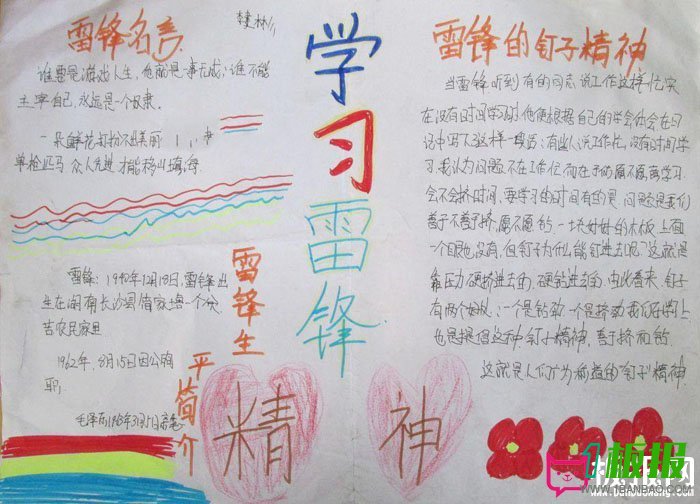 雷锋名言
谁要是游戏人生,他就是一事无成,谁不能
主宰自己,永远是一个奴隶。
一朵鲜花打扮不出美丽
单枪匹马 众人先进才能移山填海
雷锋:1940年12月18日,雷锋出
生在湖南长沙
吉农民家里
1962年,8月15日因公殉
职,
毛泽东1963年3月5日亲笔
雷锋生
平简介
学习雷锋
精神
雷锋的钉子精神
当雷锋听到有的同志说工作这样忙实
在没有时间学习时他便根据自己的学会体会在日
记中写下这样一段话:有些人说工作忙,没有时间学
习,我认为问题不在工作忙而在于你愿不愿意学习
会不会挤时间,要学习的时间有的是,问题是我们
善于不善于挤,愿不愿钻,一块好好的木板,上面
一个眼也没有,但钉子为什么能钉进去呢?这就是
靠压力硬挤进去的,硬钻进去的,由此看来,钉子
有两个好处:一个是钻劲,一个是挤劲我们在学习上
也是提倡这种"钉子"精神,善于挤和钻
这就是人们广为称道的"钉子"精神
1板报
WWW.1BANBAO.COM